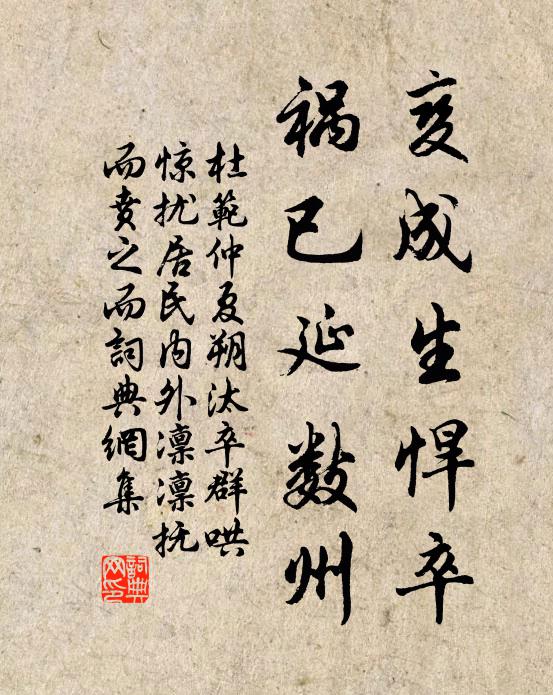 变成生悍卒
祸已延数州
杜範仲夏朔汰卒群哄
惊扰居民内外凛凛抚
而赉之而詞典網集
詞典网印